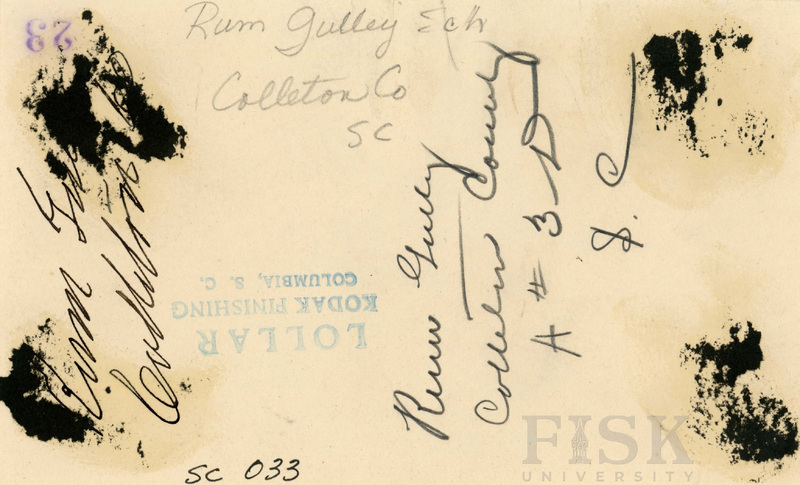 23
Rum Gulley Sch
Colleton Co
SC
Rum Gul
Colleton
Rum Gully
Colleton County
A # 3-D
S. C
LOLLAR
KODAK FINISHING
COLUMBIA, S. C.
SC 033
FISK
UNIVERSITY